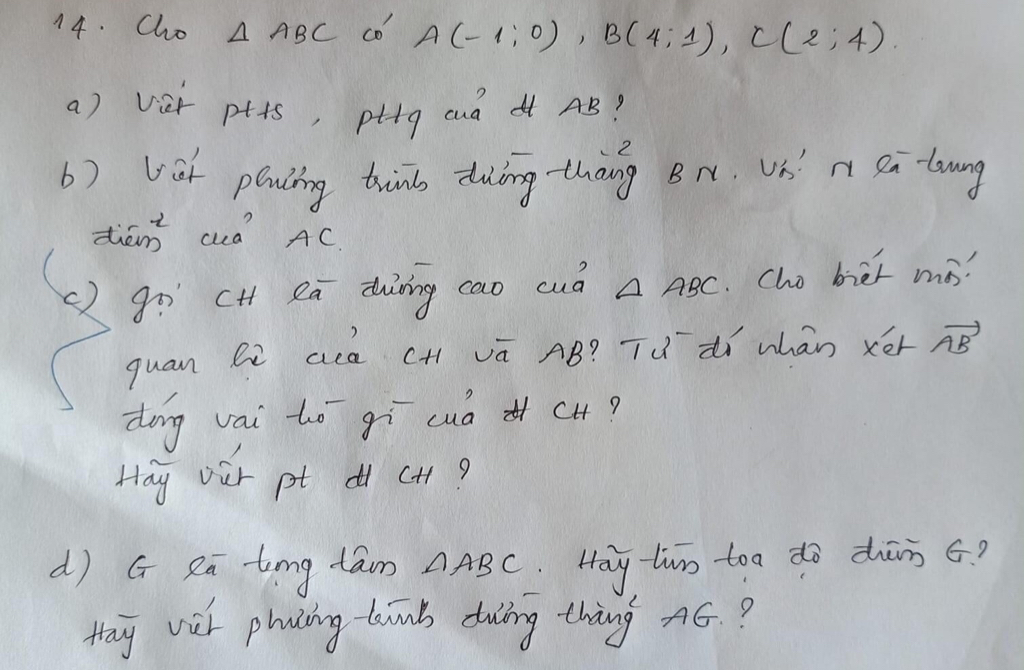 14. Cho Δ ABC có A(-1;0), B(4;1), C(2;4).
a) Viết ptts, pttq của đt AB?
b) Viết phương trình đường thẳng BN. Với N là trung
điểm của AC.
c) gọi CH là đường cao của Δ ABC. Cho biết mối
quan hệ của CH và AB? Từ đó nhận xét \overrightarrow{AB}
đóng vai trò gì của đt CH?
Hãy viết pt đt CH?
d) G là trọng tâm ΔABC. Hãy tìm tọa độ điểm G?
Hãy viết phương trình đường thẳng AG.?